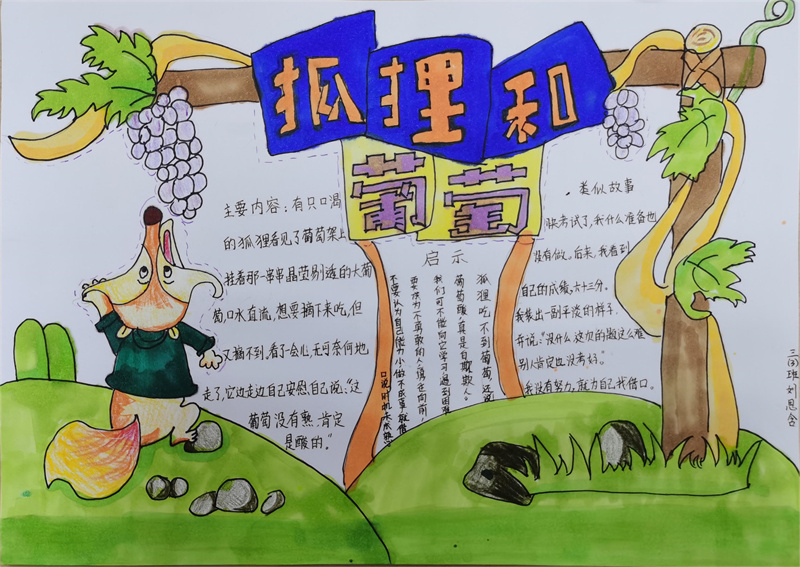 狐狸和
葡萄
主要内容：有只口渴
的狐狸看见了葡萄架上
挂着那一串串晶莹剔透的大葡
萄，口水直流，想要摘下来吃，但
又摘不到，看了一会心，无可奈何地
走了，它边走边自己安慰自己说：“这
葡萄没有熟，肯定
是酸的。”
启示
狐狸吃不到葡萄，还说
葡萄酸，真是自欺欺人。
我们可不能向它学习，遇到困难
要浪力不勇敢的人，勇往向前，
不要认为自己能力小做不成事，就借
口说时机未成熟
类似故事
快考试了，我什么准备也
没有做。后来，我看到
自己的成绩，六十三分。
我装出一副平淡的样子，
并说：“没什么，这次的题这么难
别人肯定也没考好。”
我没有努力，就为自己找借口。
三(3)班 刘恩含